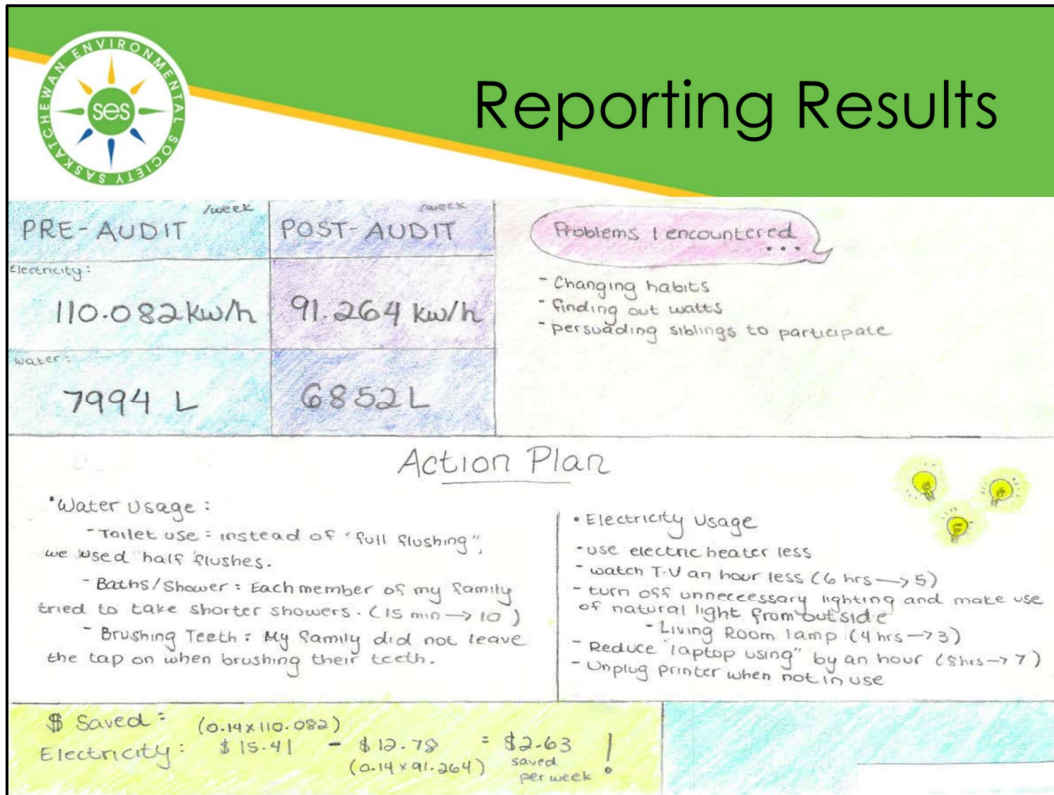 SASKATCHEWAN ENVIRONMENTAL SOCIETY
ses
Reporting Results
/week
PRE-AUDIT
/week
POST-AUDIT
Electricity:
110.082 kw/h
91.264 kw/h
water:
7994 L
6852 L
Problems I encountered
...
- Changing habits
- finding out watts
- persuading siblings to participate
Action Plan
• Water Usage:
- Toilet use: instead of "full flushing",
we used "half flushes.
- Baths/Shower: Each member of my family
tried to take shorter showers. (15 min → 10)
- Brushing Teeth: My family did not leave
the tap on when brushing their teeth.
• Electricity Usage
- use electric heater less
- watch T.V an hour less (6 hrs → 5)
- turn off unneccessary lighting and make use
of natural light from outside
- Living Room lamp (4 hrs → 3)
- Reduce "laptop using" by an hour (8hrs → 7)
- Unplug printer when not in use
$ Saved: (0.14 x 110.082)
Electricity: $15.41 - $12.78 = $2.63 !
(0.14 x 91.264) saved
per week